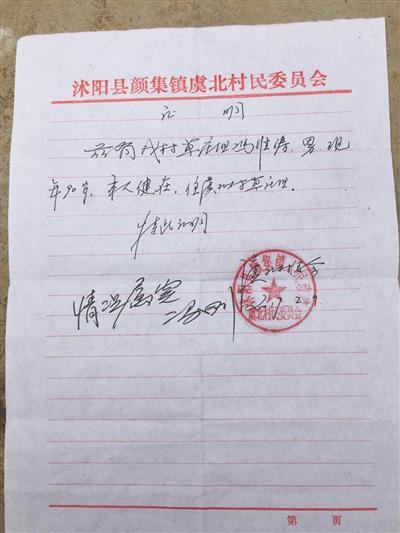 沭阳县颜集镇虞北村民委员会
证 明
兹有我村草庄组冯唯得 男 现
年90岁,本人健在,住虞北村草庄组
特此证明
情况属实
虞北村委会
虞北村民委员会
第 页